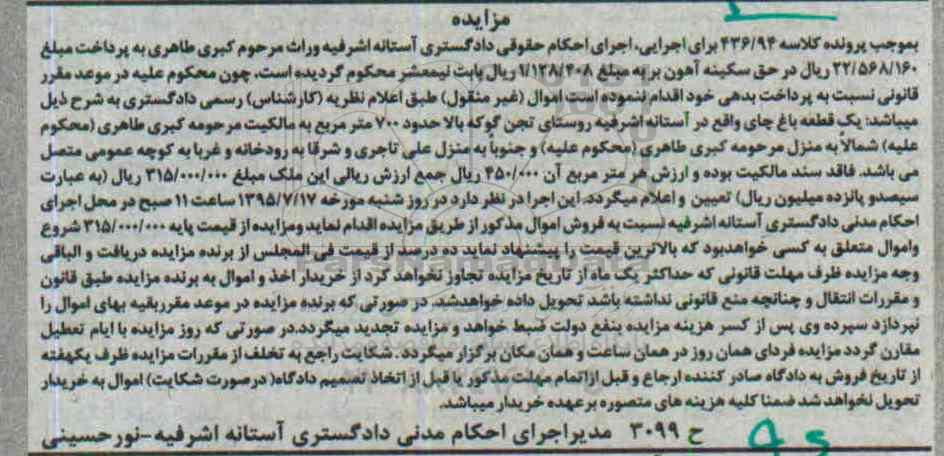 مزایده
بموجب پرونده کلاسه ۴۳۶/۹۴ برای اجرایی، اجرای احکام حقوقی دادگستری آستانه اشرفیه وراث مرحوم کبری طاهری به پرداخت مبلغ
۲۲/۵۶۸/۱۶۰ ریال در حق سکینه آهون بر به مبلغ ۱/۱۲۸/۴۰۸ ریال بابت نیمعشر محکوم گردیده است، چون محکوم علیه در موعد مقرر
قانونی نسبت به پرداخت بدهی خود اقدام ننموده است اموال (غیر منقول) طبق اعلام نظریه (کارشناس) رسمی دادگستری به شرح ذیل
میباشد: یک قطعه باغ چای واقع در آستانه اشرفیه روستای تجن گوکه بالا حدود ۷۰۰ متر مربع به مالکیت مرحومه کبری طاهری (محکوم
علیه) شمالاً به منزل مرحومه کبری طاهری (محکوم علیه) و جنوباً به منزل علی تاجری و شرقا به رودخانه و غربا به کوچه عمومی متصل
می باشد. فاقد سند مالکیت بوده و ارزش هر متر مربع آن ۴۵۰/۰۰۰ ریال جمع ارزش ریالی این ملک مبلغ ۳۱۵/۰۰۰/۰۰۰ ریال (به عبارت
سیصدو پانزده میلیون ریال) تعیین و اعلام میگردد. این اجرا در نظر دارد در روز شنبه مورخه ۱۳۹۵/۷/۱۷ ساعت ۱۱ صبح در محل اجرای
احکام مدنی دادگستری آستانه اشرفیه نسبت به فروش اموال مذکور از طریق مزایده اقدام نماید ومزایده از قیمت پایه ۳۱۵/۰۰۰/۰۰۰ شروع
واموال متعلق به کسی خواهدبود که بالاترین قیمت را پیشنهاد نماید ده درصد از قیمت فی المجلس از برنده مزایده دریافت و الباقی
وجه مزایده ظرف مهلت قانونی که حداکثر یک ماه از تاریخ مزایده تجاوز نخواهد کرد از خریدار اخذ و اموال به برنده مزایده طبق قانون
و مقررات انتقال و چنانچه منع قانونی نداشته باشد تحویل داده خواهدشد. در صورتی که برنده مزایده در موعد مقرربقیه بهای اموال را
نپردازد سپرده وی پس از کسر هزینه مزایده بنفع دولت ضبط خواهد و مزایده تجدید میگردد.در صورتی که روز مزایده با ایام تعطیل
مقارن گردد مزایده فردای همان روز در همان ساعت و همان مکان برگزار میگردد. شکایت راجع به تخلف از مقررات مزایده ظرف یکهفته
از تاریخ فروش به دادگاه صادر کننده ارجاع و قبل ازاتمام مهلت مذکور یا قبل از اتخاذ تصمیم دادگاه( درصورت شکایت) اموال به خریدار
تحویل نخواهد شد ضمنا کلیه هزینه های متصوره برعهده خریدار میباشد.
ح ۳۰۹۹ مدیراجرای احکام مدنی دادگستری آستانه اشرفیه-نورحسینی